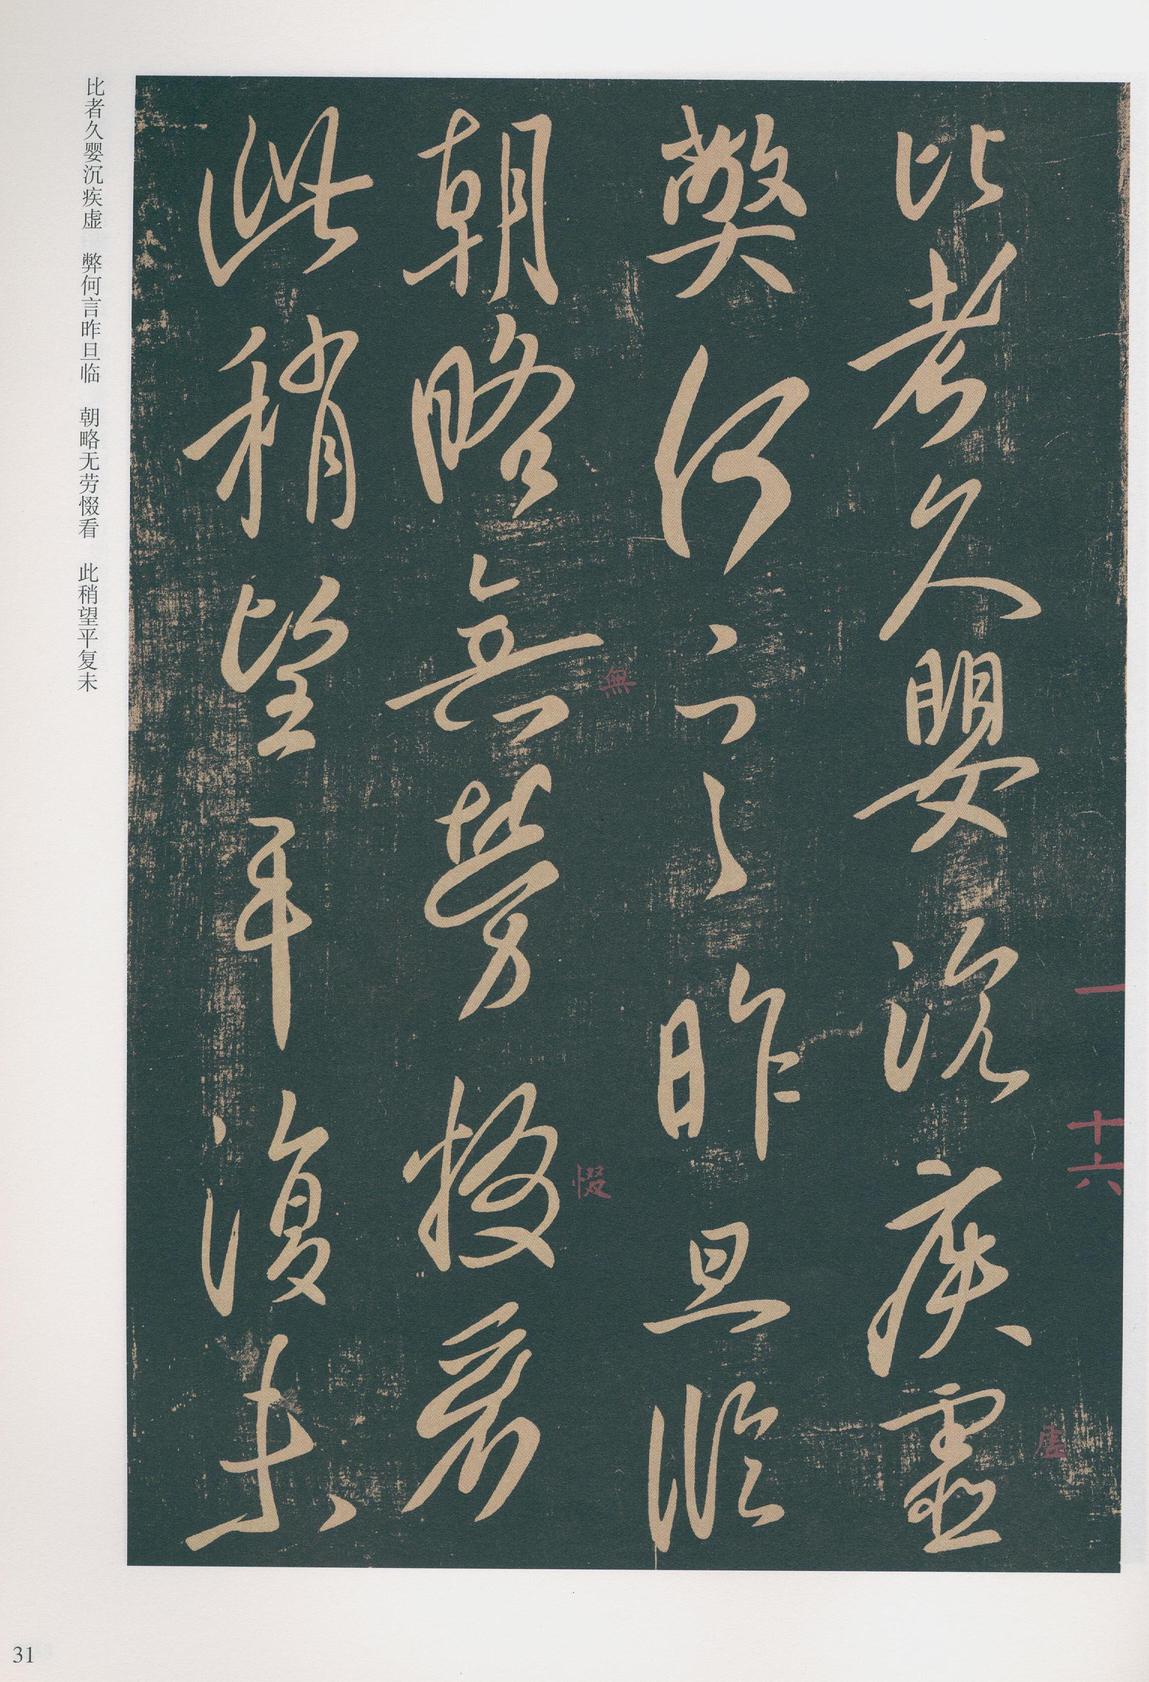 比者久嬰沉疾虛
弊何言昨旦臨
朝略無勞惙看
此稍望平復未
一
十六
虛
無
惙
比者久婴沉疾虚　弊何言昨旦临　朝略无劳惙看　此稍望平复未
31